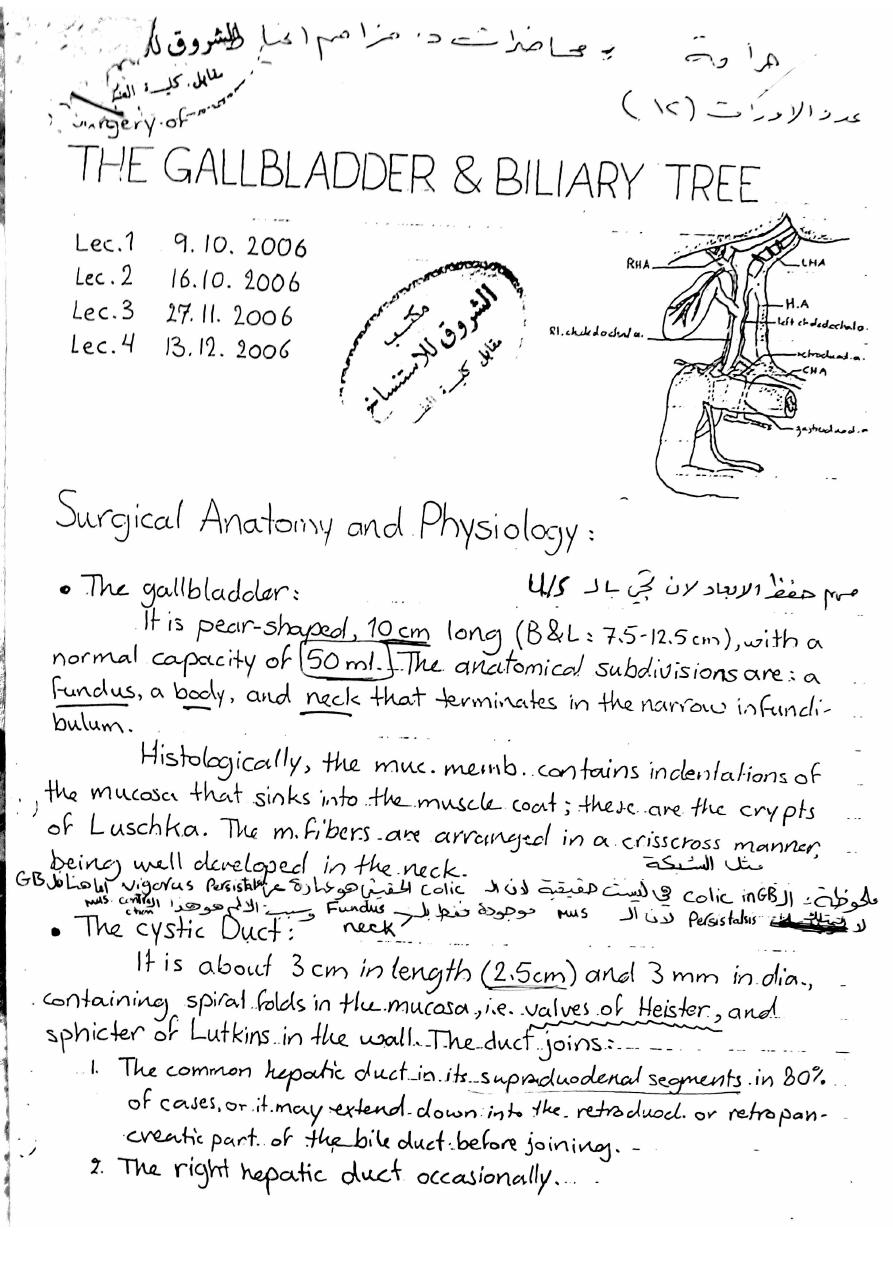 جراحة محاضرات د. مزاحم
عدد الاوراق (١٢)
الشروق
مقابل كلية
Surgery of
THE GALLBLADDER & BILIARY TREE
Lec.1 9.10.2006
Lec.2 16.10.2006
Lec.3 27.11.2006
Lec.4 13.12.2006
مكتب
الشروق للاستنساخ
مقابل كلية
RHA
LHA
H.A
left choledochal a.
Rt. choledochal a.
retroduod. a.
CHA
gastroduod. a
Surgical Anatomy and Physiology:
• The gallbladder:
مهم حفظ الابعاد لان تجي بالـ U/S
It is pear-shaped, 10 cm long (B&L: 7.5-12.5cm), with a
normal capacity of 50 ml. The anatomical subdivisions are: a
fundus, a body, and neck that terminates in the narrow infundi-
bulum.
Histologically, the muc. memb. contains indentations of
the mucosa that sinks into the muscle coat; these are the crypts
of Luschka. The m. fibers are arranged in a crisscross manner,
being well developed in the neck.
مثل الشبكة
ملحوظة: الـ colic in GB هي ليست حقيقية لان الـ colic الحقيقي هو عبارة عن vigorus Peristalsis اما هنا GB
لا Peristalsis لان الـ mus موجودة فقط بـ Fundus neck وسبب الالم هو هذا mus. contraction
• The cystic Duct:
It is about 3 cm in length (2.5cm) and 3 mm in dia.,
containing spiral folds in the mucosa, i.e. valves of Heister, and
sphicter of Lutkins in the wall. The duct joins:
1. The common hepatic duct in its supraduodenal segments in 80%
of cases, or it may extend down into the retroduod. or retropan-
creatic part of the bile duct before joining.
2. The right hepatic duct occasionally.